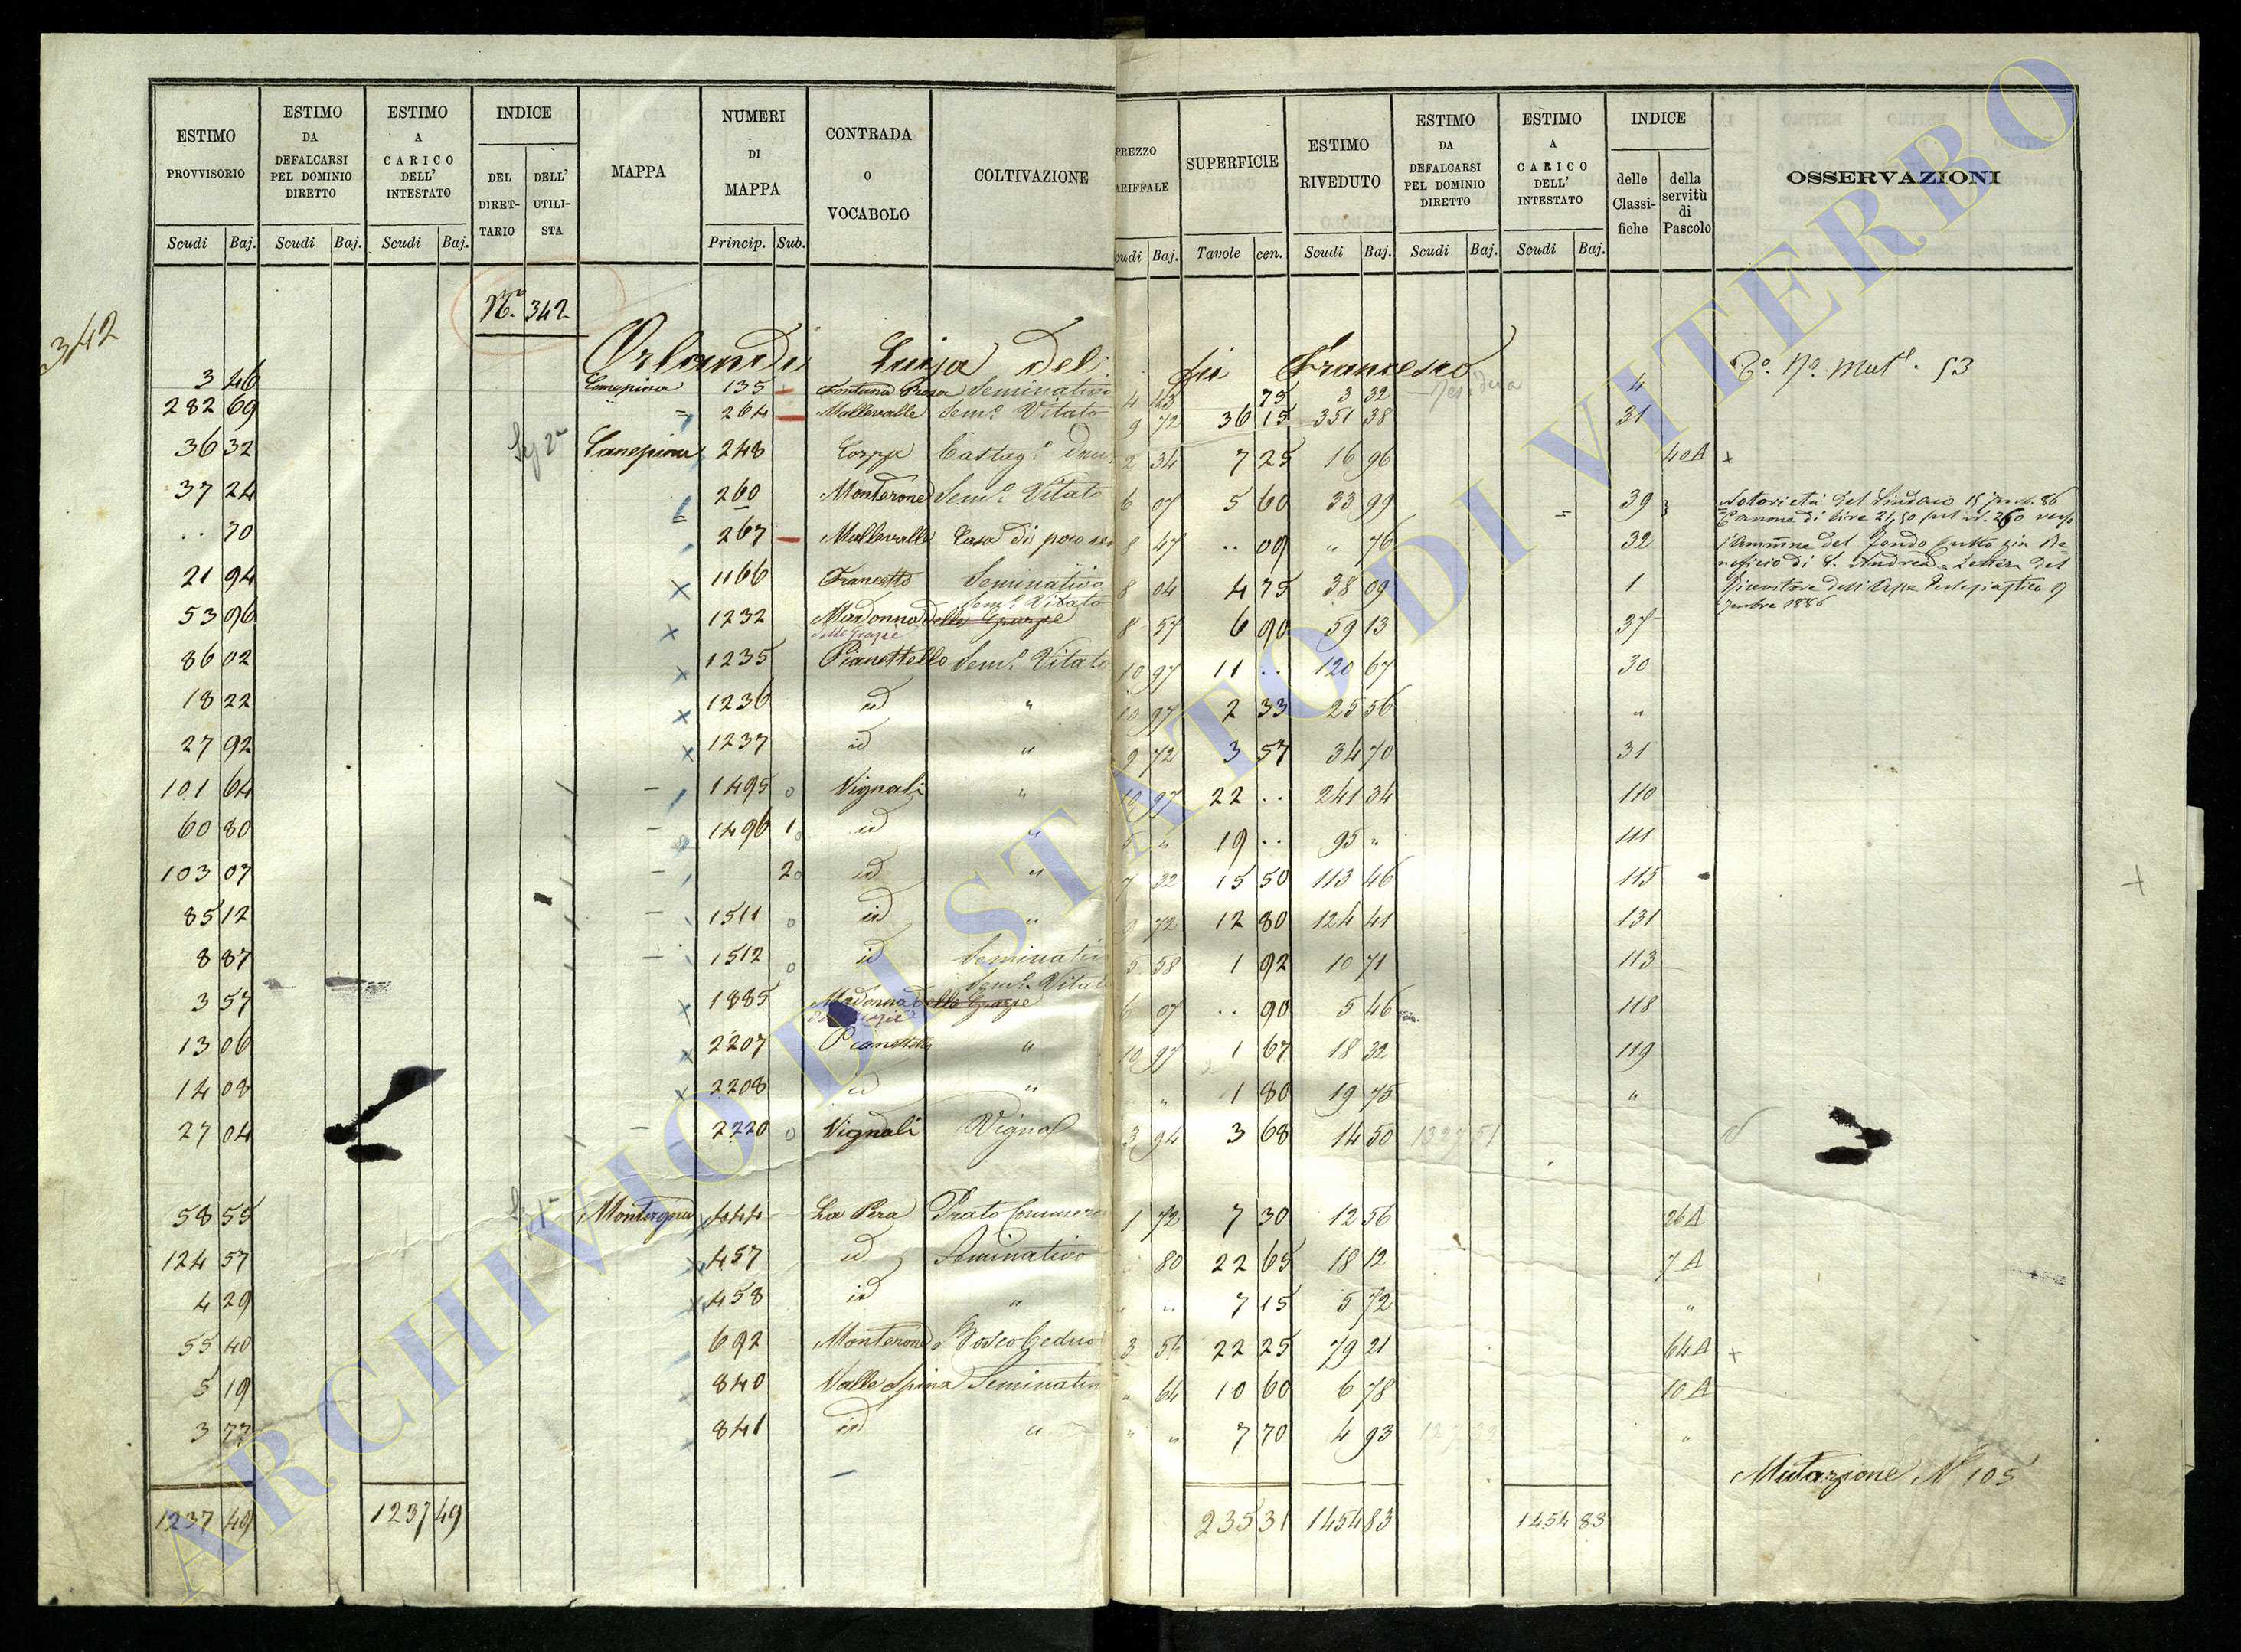 ESTIMO PROVVISORIO Scudi Baj.
ESTIMO DA DEFALCARSI PEL DOMINIO DIRETTO Scudi Baj.
ESTIMO A CARICO DELL' INTESTATO Scudi Baj.
INDICE DEL DIRET-TARIO DELL' UTILI-STA
MAPPA
NUMERI DI MAPPA Princip. Sub.
CONTRADA O VOCABOLO
COLTIVAZIONE
PREZZO ARIFFALE cudi Baj.
SUPERFICIE Tavole cen.
ESTIMO RIVEDUTO Scudi Baj.
ESTIMO DA DEFALCARSI PEL DOMINIO DIRETTO Scudi Baj.
ESTIMO A CARICO DELL' INTESTATO Scudi Baj.
INDICE delle Classi-fiche della servitù di Pascolo
OSSERVAZIONI
342
N.° 342
Orlandi Luisa del fu Francesco
N.° Mut. 53
3 46 Canepina 135 Fontana Seminativo 4 43 75 3 32 4
282 69 264 Mallevalle Sem.° Vitato 9 72 36 15 351 38 31
36 32 Canepina 248 Cozza Castag.° 2 34 7 25 16 96 40A x
37 24 260 Monterone Sem.° Vitato 6 07 5 60 33 99 39
.. 70 267 Mallevalle Casa di 8 47 .. 09 " 76 32
21 94 x 1166 Francetto Seminativo 8 04 4 75 38 09 1
53 96 x 1232 Madonna delle Grazie Sem.° Vitato 8 57 6 90 59 13 37
86 02 x 1235 Pianettello Sem.° Vitato 10 97 11 .. 120 67 30
18 22 x 1236 id " 10 97 2 33 25 56 "
27 92 x 1237 id " 9 72 3 57 34 70 31
101 64 1495 Vignali " 10 97 22 .. 241 34 110
60 80 1496 1 id " 5 " 19 .. 95 " 111
103 07 2 id " 7 32 15 50 113 46 115
85 12 1511 id " 9 72 12 80 124 41 131
8 87 1512 id Seminativo 5 58 1 92 10 71 113
3 57 x 1885 Madonna delle Grazie Sem.° Vitato 6 07 .. 90 5 46 118
13 06 x 2207 Pianettello " 10 97 1 67 18 32 119
14 08 x 2208 id " " 1 80 19 75 "
27 04 2220 Vignali Vigna 3 94 3 68 14 50
58 55 444 La Pera Prato 1 72 7 30 12 56 26A
124 57 457 id Seminativo 80 22 65 18 12 7A
4 29 458 id " " " 7 15 5 72 "
55 40 692 Monterone Bosco Ceduo 3 56 22 25 79 21 64A x
5 19 840 Valle Spina Seminativo " 64 10 60 6 78 10A
3 77 841 id " " " 7 70 4 93 "
Notorietà del Sindaco 15 86
Canone di lire 21,50 sul n. 260 verso
del fondo
di S. Andrea Lettera del
Ricevitore dell'Asse Ecclesiastico 9
1886
Mutazione N 105
1237 49 1237 49 235 31 1454 83 1454 83
ARCHIVIO DI STATO DI VITERBO